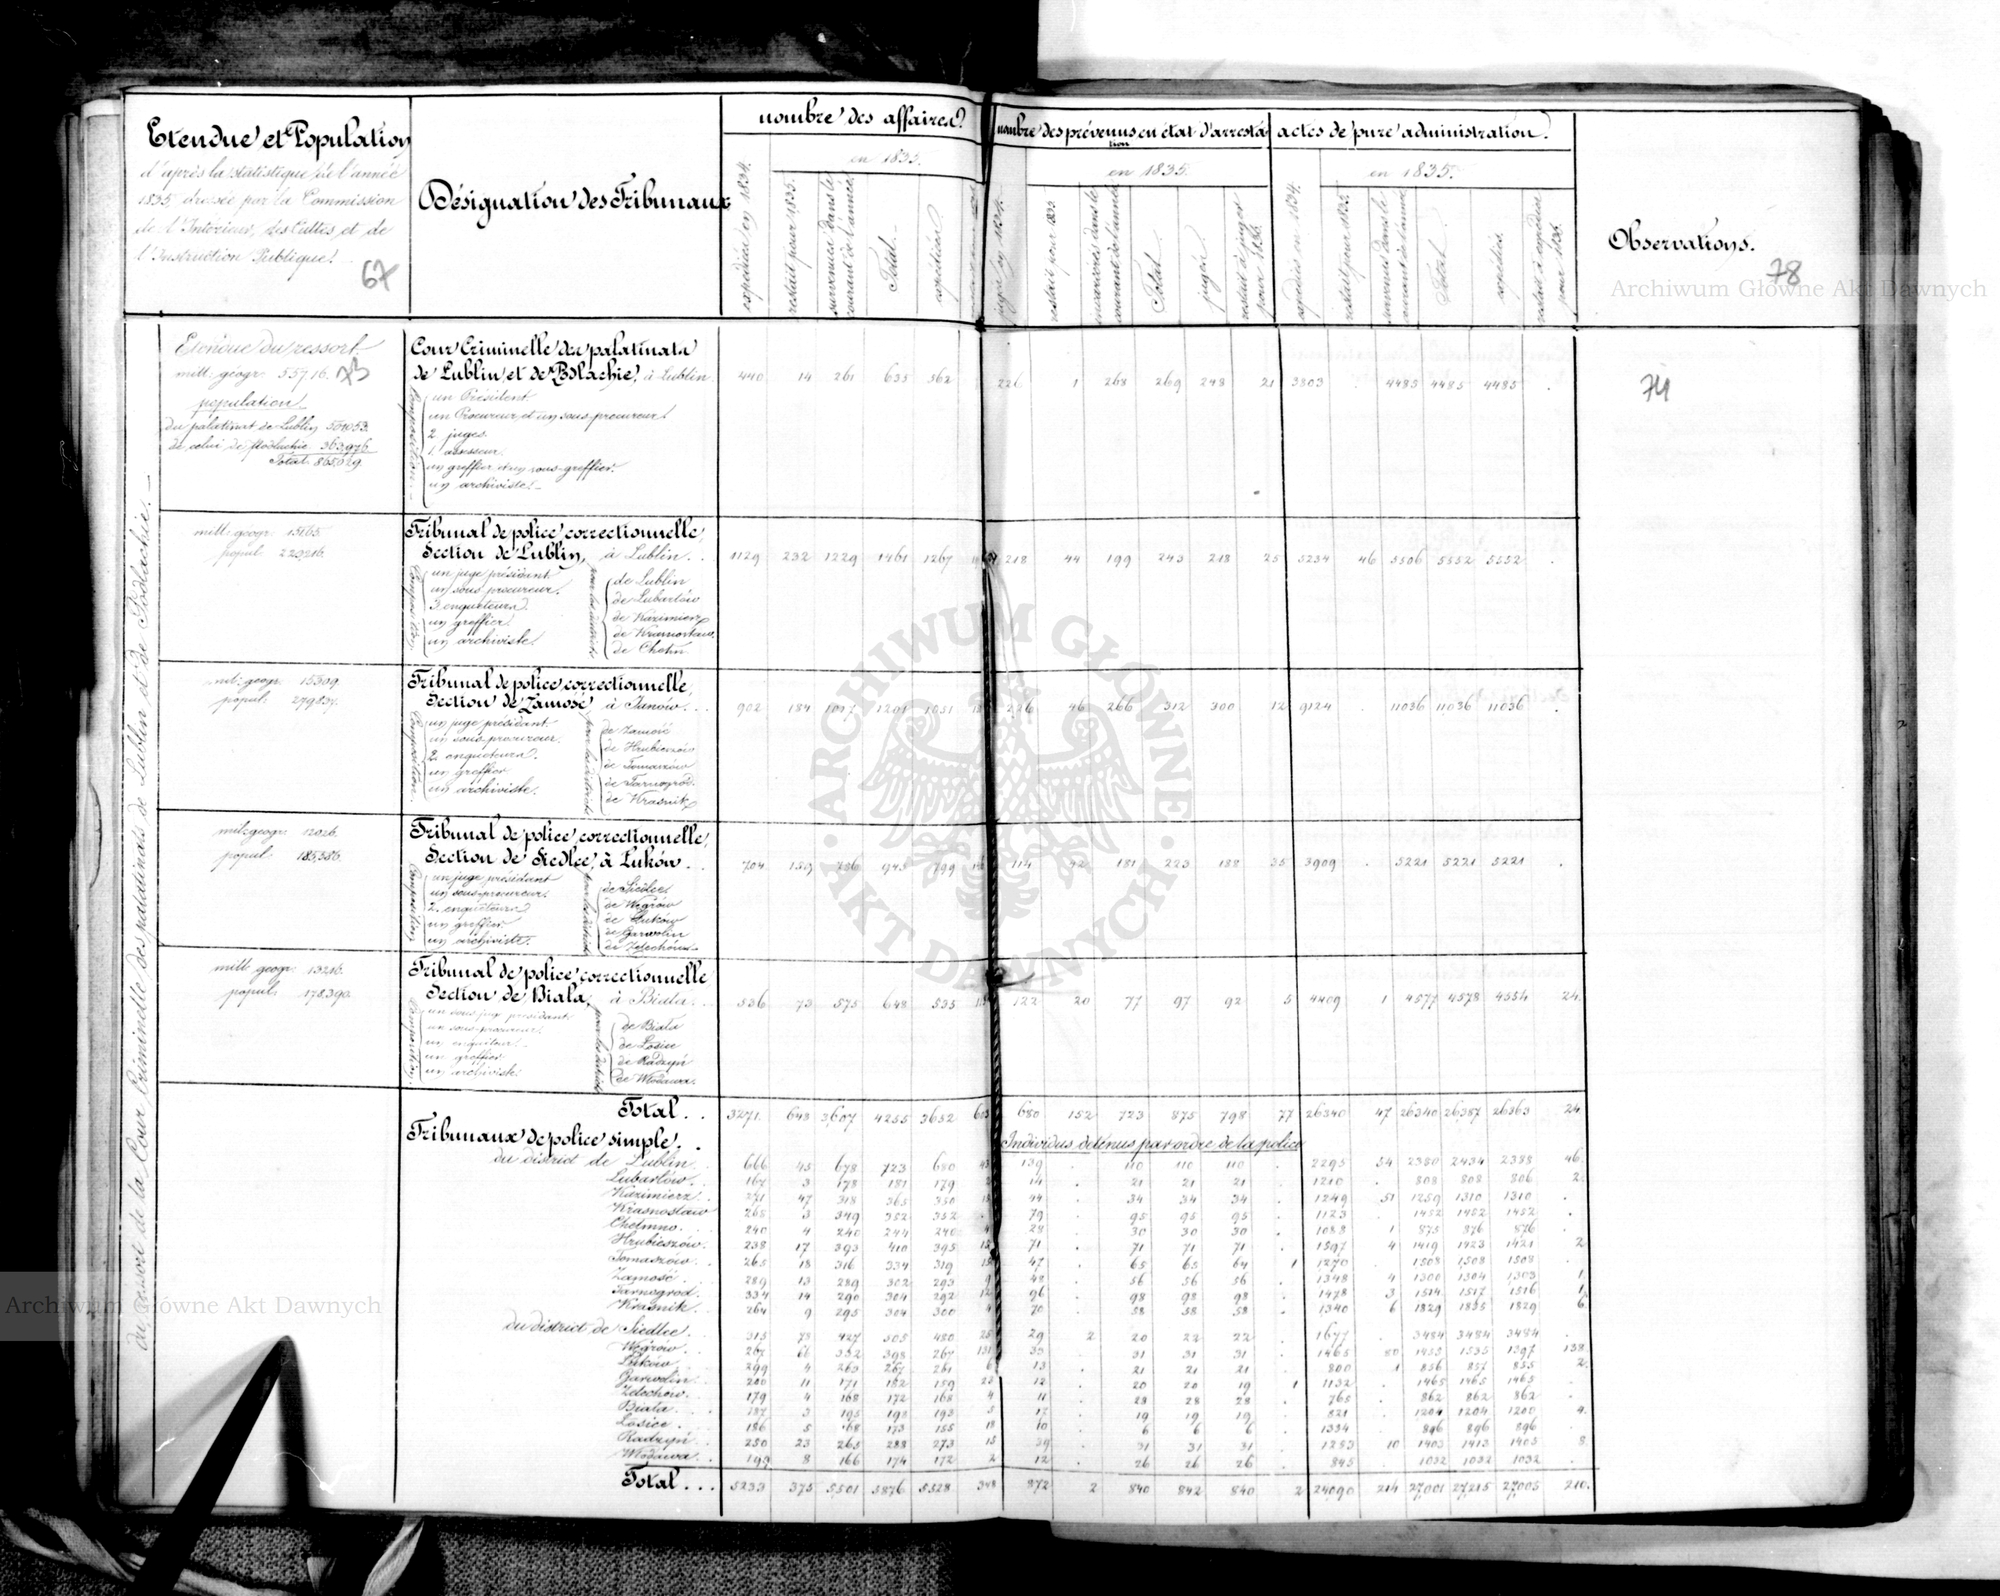 Etendue et Population
d'après la statistique de l'année
1835, dressée par la Commission
de l'Intérieur, des Cultes, et de
l'Instruction Publique.
67
Désignation des Tribunaux
nombre des affaires.
expédiées en 1834.
en 1835.
restait pour 1835.
survenues dans le courant de l'année
Total
expédiées
nombre des prévenus en état d'arrestation
jugés en 1834.
en 1835.
restait pour 1835
survenus dans le courant de l'année
Total
jugés
restait à juger pour 1836.
actes de pure administration.
expédiés en 1834.
en 1835.
restait pour 1835.
survenus dans le courant de l'année
Total
expédiés
restait à expédier pour 1836.
Observations.
78
Archiwum Główne Akt Dawnych
du ressort de la Cour Criminelle des palatinats de Lublin et de Podlachie.
Etendue du ressort.
mill: géogr: 557,16. 73
population
du palatinat de Lublin 501053.
de celui de Podlachie 363,976
Total 865,029.
Cour Criminelle des palatinats
de Lublin et de Podlachie, à Lublin. 440 14 261 635 562 226 1 268 269 248 21 3803 . 4485 4485 4485 .
74
Composition
un Président
un Procureur et un sous-procureur
2 juges
1. assesseur.
un greffier et un sous-greffier.
un archiviste.
mill: géogr: 151,65.
popul: 229,216.
Tribunal de police correctionnelle,
Section de Lublin, à Lublin . . 1129 232 1229 1461 1267 218 44 199 243 218 25 5234 46 5506 5552 5552 .
Composition
un juge président
un sous procureur.
3. enquêteurs.
un greffier.
un archiviste.
de Lublin
de Lubartów
de Kazimierz
de Krasnostaw.
de Chełm.
mil: géogr: 153,09.
popul: 279,837.
Tribunal de police correctionnelle,
Section de Zamość à Janów . . 902 184 1017 1201 1051 226 46 266 312 300 12 9124 . 11036 11036 11036 .
Composition
un juge président
un sous-procureur.
2. enquêteurs.
un greffier
un archiviste.
de Zamość
de Hrubieszów
de Tomaszów
de Tarnogród.
de Kraśnik
mil: géogr: 120,26.
popul: 185,586.
Tribunal de police correctionnelle,
Section de Siedlce, à Łuków . . 704 159 786 945 799 114 42 181 223 188 35 3909 . 5221 5221 5221 .
Composition
un juge président
un sous-procureur.
2. enquêteurs
un greffier.
un archiviste.
de Siedlce
de Węgrów
de Łuków
de Garwolin
de Żelechów
mill: géogr: 132,16.
popul: 178,390.
Tribunal de police correctionnelle
Section de Biała, à Biała . . 536 73 575 648 535 113 122 20 77 97 92 5 4409 1 4577 4578 4554 24.
Composition
un sous juge président
un sous-procureur.
un enquêteur.
un greffier
un archiviste.
de Biała
de Łosice
de Radzyń
de Włodawa.
Total . . 3271. 648 3,607 4255 3652 603 680 152 723 875 798 77 26340 47 26340 26,387 26363 24.
Tribunaux de police simple . .
Individus détenus par ordre de la police
du district de Lublin . 666 45 678 723 680 43 139 . 110 110 110 . 2295 54 2380 2434 2388 46
Lubartów . 167 3 178 181 179 2 14 . 21 21 21 . 1210 . 808 808 806 2
Kazimierz . 271 47 318 365 350 15 44 . 34 34 34 . 1249 51 1259 1310 1310 .
Krasnostaw 265 3 349 352 352 . 79 . 95 95 95 . 1123 . 1452 1452 1452 .
Chełmno . 240 4 240 244 240 4 28 . 30 30 30 . 1088 1 875 876 876 .
Hrubieszów . 238 17 393 410 395 15 71 . 71 71 71 . 1597 4 1419 1423 1421 2
Tomaszów . 265 18 316 334 319 15 47 . 65 65 64 1 1270 . 1508 1508 1508 .
Zamość . 289 13 289 302 293 9 48 . 56 56 56 . 1348 4 1300 1304 1303 1
Tarnogród . 334 14 290 304 292 12 96 . 98 98 98 . 1478 3 1514 1517 1516 1
Kraśnik . 264 9 295 304 300 4 70 . 58 58 58 . 1340 6 1829 1835 1829 6
du district de Siedlce . 315 78 427 505 480 25 29 2 20 22 22 . 1677 . 3484 3484 3484 .
Węgrów . 267 66 332 398 267 131 33 . 31 31 31 . 1465 80 1455 1535 1397 138
Łuków . 299 4 263 267 261 6 13 . 21 21 21 . 800 1 856 857 855 2
Garwolin . 200 11 171 182 159 23 12 . 20 20 19 1 1132 . 1465 1465 1465 .
Żelechów . 179 4 168 172 168 4 11 . 28 28 28 . 765 . 862 862 862 .
Biała . 3 195 198 193 5 17 . 19 19 19 . 821 . 1204 1204 1200 4
Łosice . 186 5 168 173 155 18 10 . 6 6 6 . 1334 . 896 896 896 .
Radzyń . 250 23 265 288 273 15 39 . 31 31 31 . 1253 10 1403 1413 1405 8
Włodawa . 199 8 166 174 172 2 12 . 26 26 26 . 845 . 1032 1032 1032 .
Total . . . 5233 375 5,501 5876 5528 348 872 2 840 842 840 2 24090 214 27,001 27,215 27,005 210.
ARCHIWUM GŁÓWNE AKT DAWNYCH
Archiwum Główne Akt Dawnych